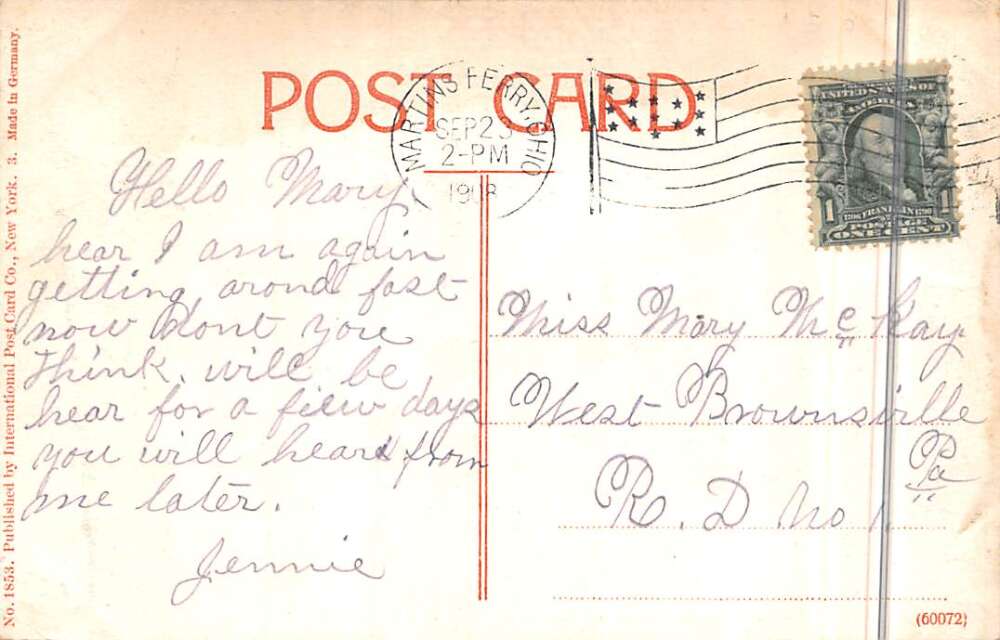 POST CARD
MARTINS FERRY, OHIO
SEP 23
2-PM
1908
UNITED STATES OF
AMERICA
1
1706 FRANKLIN 1790
POSTAGE
ONE CENT
Hello Mary.
hear I am again
getting arond fast
now dont you
think. will be
hear for a fiew days
you will hear from
me later.
Jennie
Miss Mary Mc Kay
West Brownsville
Pa
R. D No 1
No. 1853. Published by International Post Card Co., New York. 3. Made in Germany.
(60072)